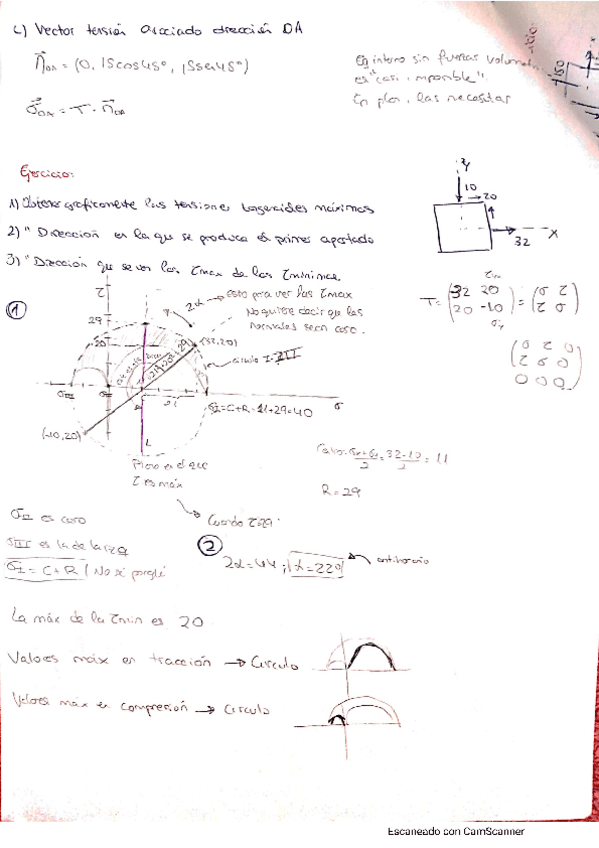 c) Vector tensión asociado dirección OA
n̄OA = (0, 15cos45°, 15sen45°)
σ̄OA = T · n̄OA
Ejercicio:
1) Obtener graficamente las tensiones tangenciales máximas
2) " Dirección en la que se produce el primer apartado
3) " Dirección que se ven las τmax de las mínimas
y
10
20
x
32
T = (32 20 / 20 -10) = (σ τ / τ σ)
(σ τ 0
τ σ 0
0 0 0)
1
τ
29
20
2α → esto para ver las τmax
No quiere decir que las
normales sean cero.
(32,20)
Circulo I-III
σI = C+R = 11+29 = 40
σ
(-10,20)
Plano en el que
τ es máx
= 32-10/2 = 11
R = 29
σII es cero
σIII es la de la izq
σI = C+R (No sé porqué
Cuando τ=29
2
2α = 44 ; α = 22º
antihorario
La máx de la τmin es 20
Valores máx en tracción → Circulo
Valores máx en compresión → Circulo
Escaneado con CamScanner